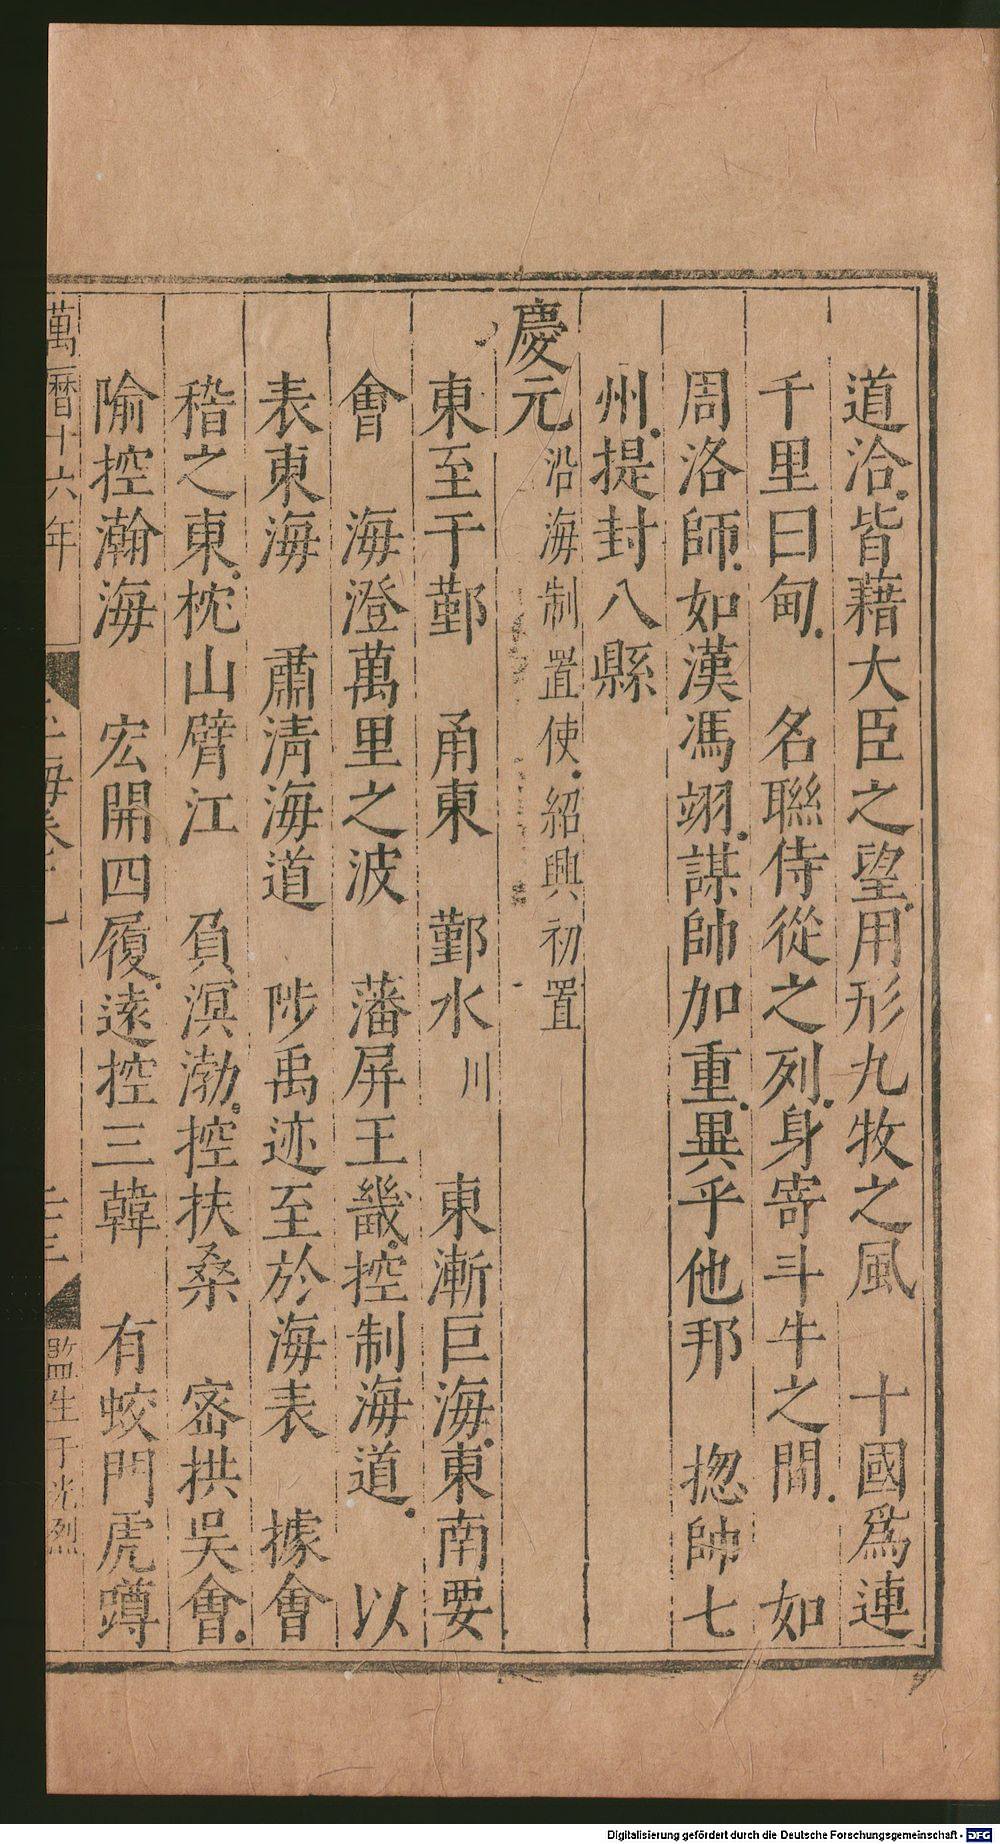 道洽皆藉大臣之望用形九牧之風　十國爲連
千里曰甸　名聯侍從之列身寄斗牛之間　如
周洛師如漢馮翊謀帥加重異乎他邦　揔帥七
州提封八縣
慶元沿海制置使紹興初置
東至于鄞　甬東　鄞水川　東漸巨海東南要
會　海澄萬里之波　藩屏王畿控制海道　以
表東海　肅清海道　陟禹迹至於海表　據會
稽之東枕山臂江　負溟渤控扶桑　密拱吳會
隃控瀚海　宏開四履遠控三韓　有蛟門虎蹲
萬曆十六年
監生于光烈
Digitalisierung gefördert durch die Deutsche Forschungsgemeinschaft - DFG